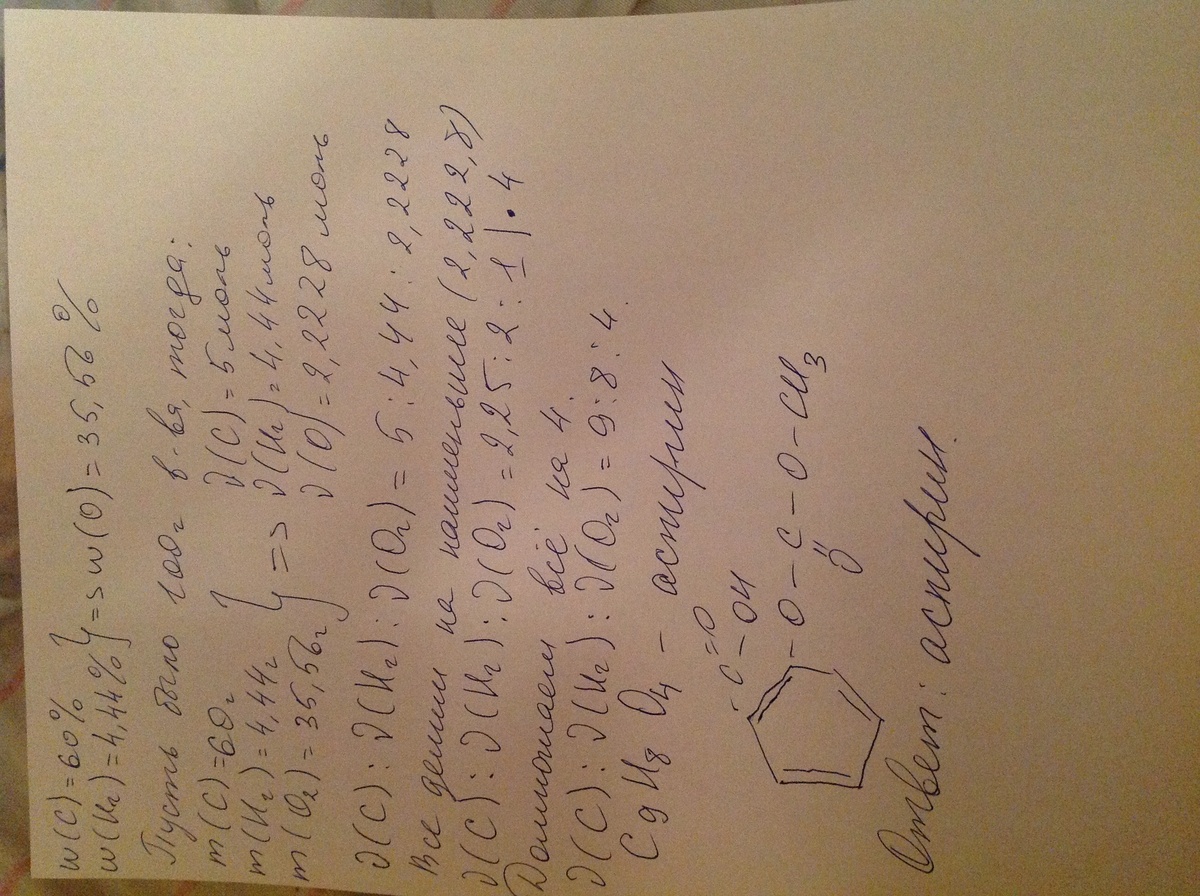 w(C)=60%
w(H₂)=4,44% } => w(O)=35,56%
Пусть было 100г в-ва, тогда:
m(C)=60г
m(H₂)=4,44г
m(O₂)=35,56г } =>
ν(C)=5моль
ν(H₂)=4,44моль
ν(O)=2,2228моль
ν(C):ν(H₂):ν(O₂)=5:4,44:2,2228
Все делим на наименьшее (2,222,8)
ν(C):ν(H₂):ν(O₂)=2,25:2:1 |•4
Домножаем всё на 4.
ν(C):ν(H₂):ν(O₂)=9:8:4.
C9H8O4 – аспирин
-C=O
-OH
-O-C-O-CH3
O
Ответ: аспирин.